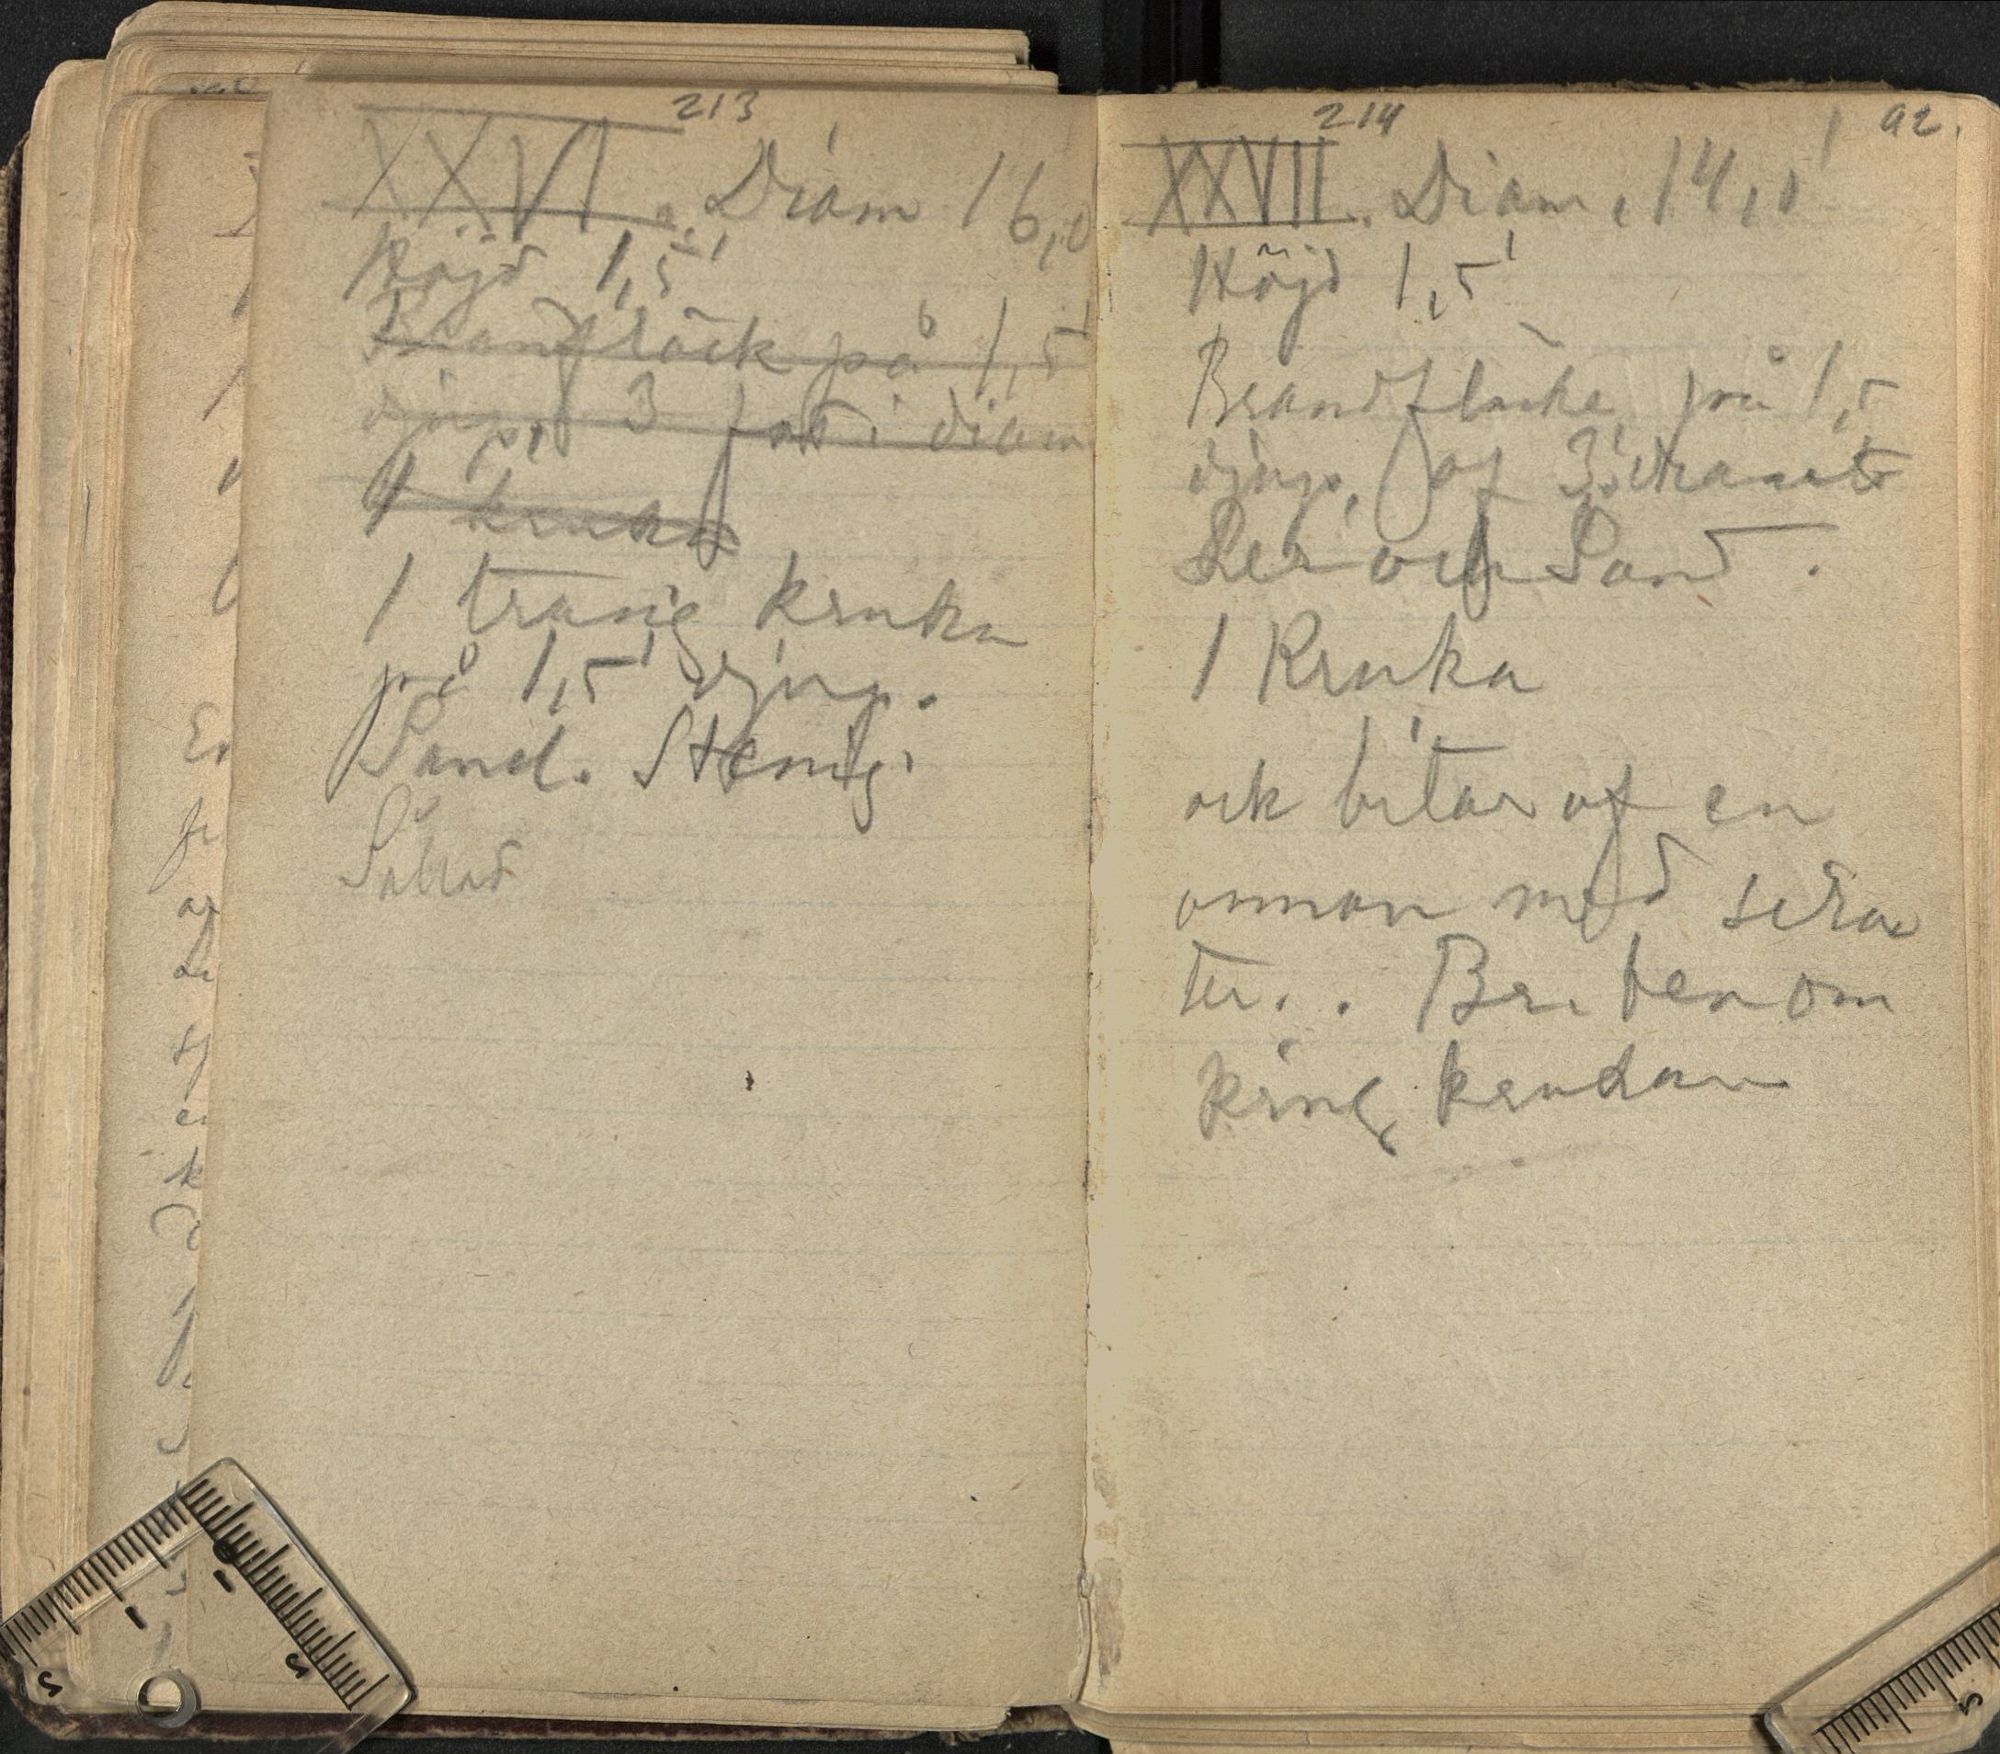 213
XXVI. Diam 16,0
Höjd 1,5'
Brandfläck på 1,5'
djup, 3 fot i diam
1 kruka
1 trasig kruka
på 1,5' djup.
Sand. Stenig.
214
92.
XXVII. Diam. 14,0'
Höjd 1,5'
Brandfläcke på 1,5
djup, af 3'
Ler och Sand.
1 Kruka
ock bitar af en
annan med sira
ter.. Br. ben om
kring krukan